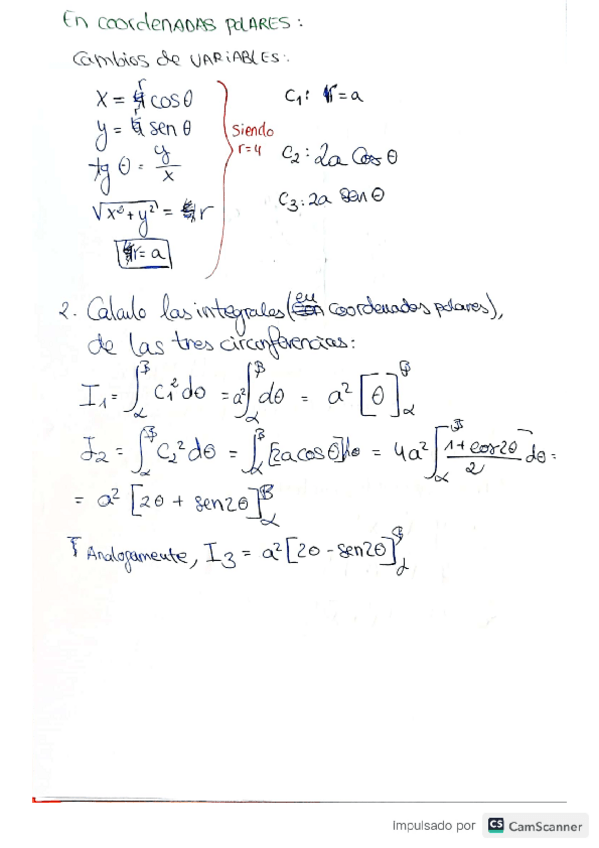 En coordenadas polares:
Cambios de variables:
x = r cos θ
y = r sen θ
tg θ = y/x
√(x² + y²) = r
r = a
Siendo
r=4
C₁: r = a
C₂: 2a cos θ
C₃: 2a sen θ
2. Calculo las integrales (en coordenadas polares),
de las tres circunferencias:
I₁ = ∫_α^β C₁² dθ = a² ∫_α^β dθ = a² [θ]_α^β
I₂ = ∫_α^β C₂² dθ = ∫_α^β [2a cos θ] dθ = 4a² ∫_α^β (1 + cos 2θ)/2 dθ =
= a² [2θ + sen 2θ]_α^β
Analogamente, I₃ = a² [2θ - sen 2θ]_α^β
Impulsado por CS CamScanner